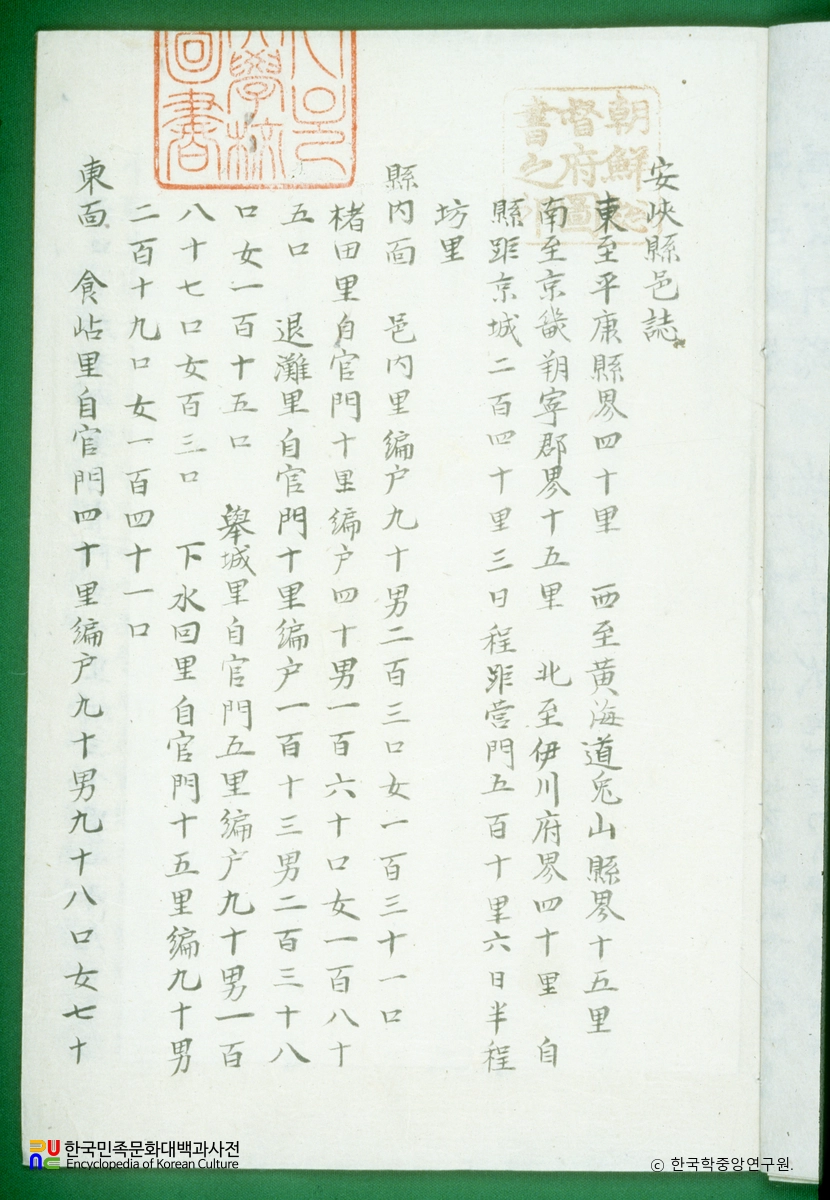 朝鮮總
督府圖
書之印
大學校
圖書
安峽縣邑誌
東至平康縣界四十里 西至黃海道兎山縣界十五里
南至京畿朔寧郡界十五里 北至伊川府界四十里 自
縣距京城二百四十里三日程距營門五百十里六日半程
坊里
縣内面 邑内里編户九十男二百三口女一百三十一口
楮田里自官門十里編户四十男一百六十口女一百八十
五口 退灘里自官門十里編户一百十三男二百三十八
口女一百十五口 擧城里自官門五里編户九十男一百
八十七口女百三口 下水回里自官門十五里編九十男
二百十九口女一百四十一口
東面 食岾里自官門四十里編户九十男九十八口女七十
한국민족문화대백과사전
Encyclopedia of Korean Culture
© 한국학중앙연구원.